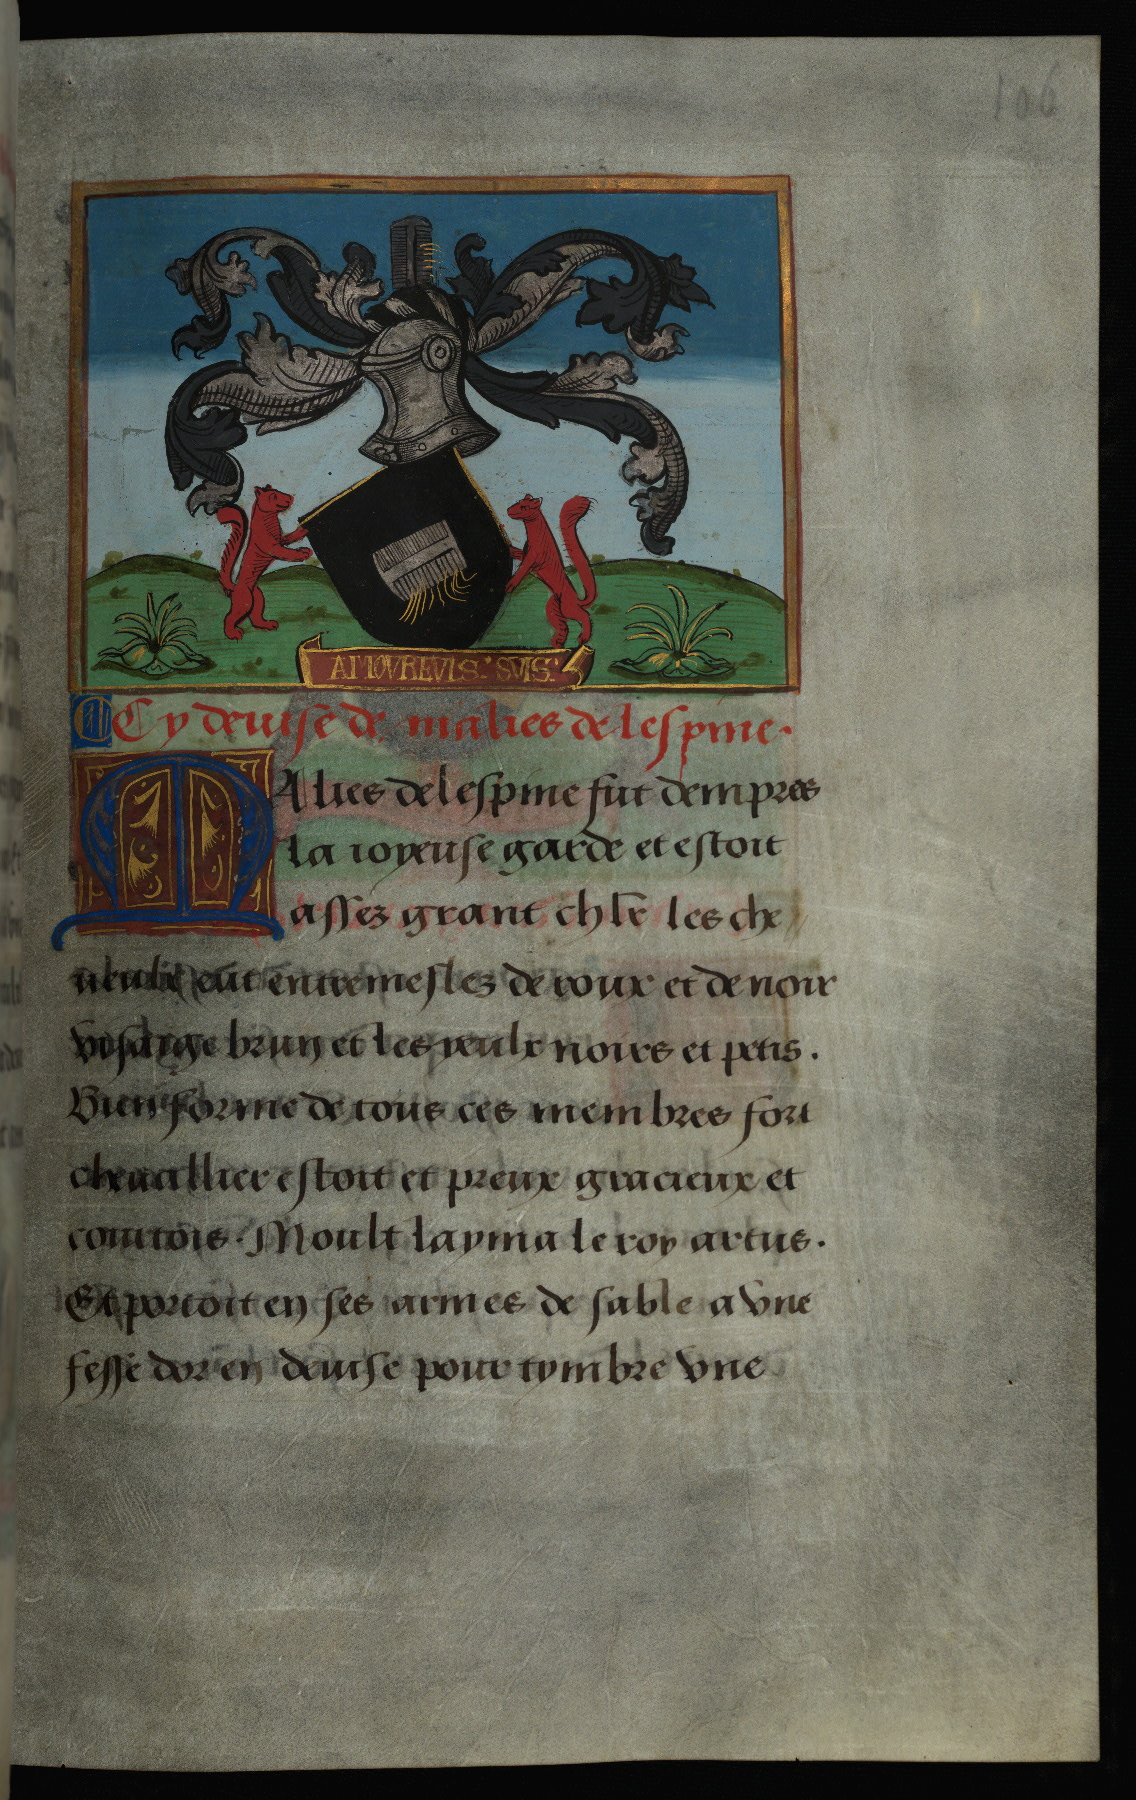 106
AMOVREVLS: SVIS:
Cy deuise de malies de lespine.
Malies de lespine fut dempres
la ioyeuse garde et estoit
assez grant chlr les che
ueulx eut entremeslez de roux et de noir
visaige brun et les yeulx noirs et petis.
Bien forme de tous ces membres fort
cheuallier estoit et preux gracieux et
courtois. Moult layma le roy artus.
Et portoit en ses armes de sable a vne
fesse dor en deuise pour tymbre vne